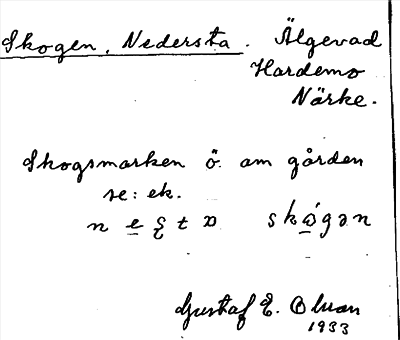 Skogen, Nedersta. Älgevad
Hardemo
Närke.
Skogsmarken ö. om gården
se: ek.
Gustaf E. Olsson
1933